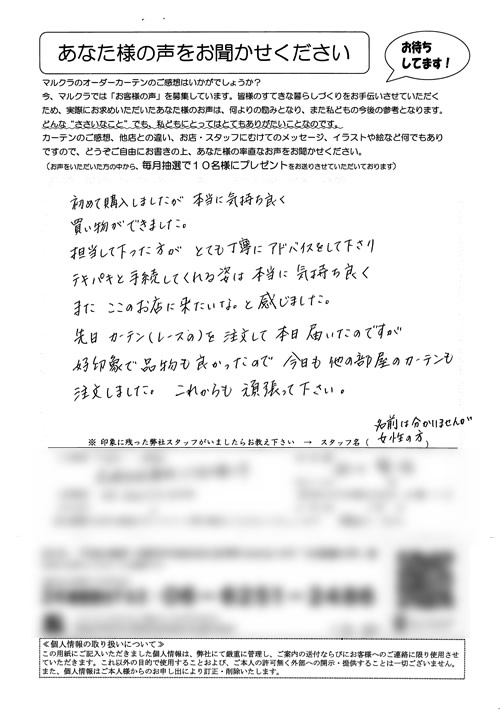 あなた様の声をお聞かせください
お待ち
してます！
マルクラのオーダーカーテンのご感想はいかがでしょうか？
今、マルクラでは「お客様の声」を募集しています。皆様のすてきな暮らしづくりをお手伝いさせていただく
ため、実際にお求めいただいたあなた様のお声は、何よりの励みとなり、また私どもの今後の参考となります。
どんな“ささいなこと”でも、私どもにとってはとてもありがたいことなのです。
カーテンのご感想、他店との違い、お店・スタッフにむけてのメッセージ、イラストや絵など何でもあり
ですので、どうぞご自由にお書きの上、あなた様の率直なお声をお聞かせください。
（お声をいただいた方の中から、毎月抽選で１０名様にプレゼントをお送りさせていただいております）
初めて購入しましたが 本当に気持ち良く
買い物ができました。
担当して下った方が とても丁寧に アドバイスをして下さり
テキパキと手続してくれる姿は 本当に 気持ち良く
また ここのお店に来たいな。と感じました。
先日 カーテン(レースの)を 注文して 本日 届いたのですが
好印象で 品物も良かったので 今日も 他の部屋のカーテンも
注文しました。 これからも 頑張って下さい。
名前は分かりませんが
女性の方
※ 印象に残った弊社スタッフがいましたらお教え下さい → スタッフ名（
06-6251-2486
≪個人情報の取り扱いについて≫
この用紙にご記入いただきました個人情報は、弊社にて厳重に管理し、ご案内の送付ならびにお客様へのご連絡に限り使用させ
ていただきます。これ以外の目的で使用することおよび、ご本人の許可無く外部への開示・提供することは一切ございません。
また、個人情報はご本人様からのお申し出により訂正・削除いたします。